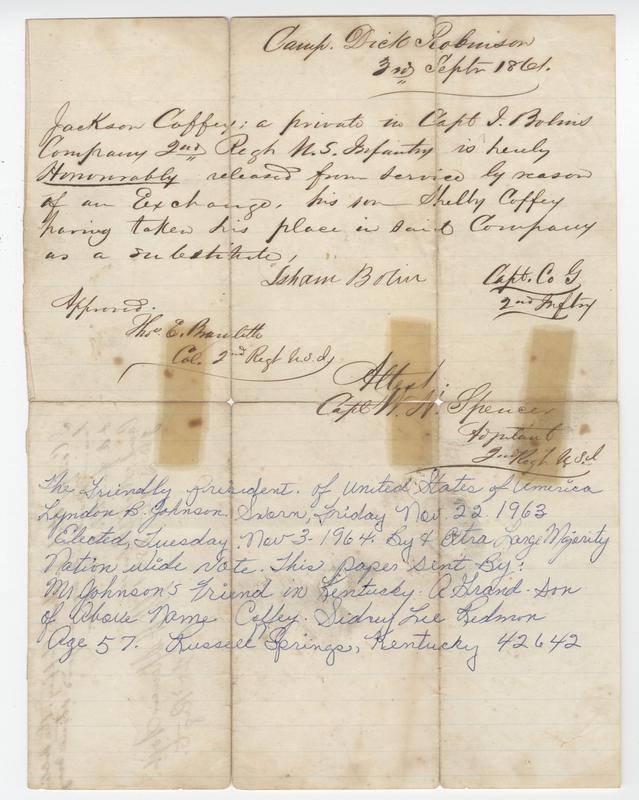 Camp. Dick Robinson
3rd Septr 1861.
Jackson Coffey; a private in Capt I. Bolins
Company 2nd Regt U.S. Infantry is hereby
Honourably released from service by reason
of an Exchange, his son Shelby Coffey
having taken his place in said Company
as a substitute,
Isham Bolin Capt. Co G
2nd Inftry
Approved.
Thos. E. Bramlette
Col. 2nd Regt U.S.
Attest.
Capt W. H. Spencer
Adjutant
2nd Regt U.S.
The Friendly president. of United States of America
Lyndon B. Johnson. Sworn, Friday Nov. 22 1963
Elected, Tuesday. Nov-3-1964. By Extra Large Majority
Nation wide vote. This paper sent By:
Mr Johnson's Friend in Kentucky. A Grand-son
of Above Name Coffey. Sidney Lee Redmon
Age 57. Russell Springs, Kentucky 42642